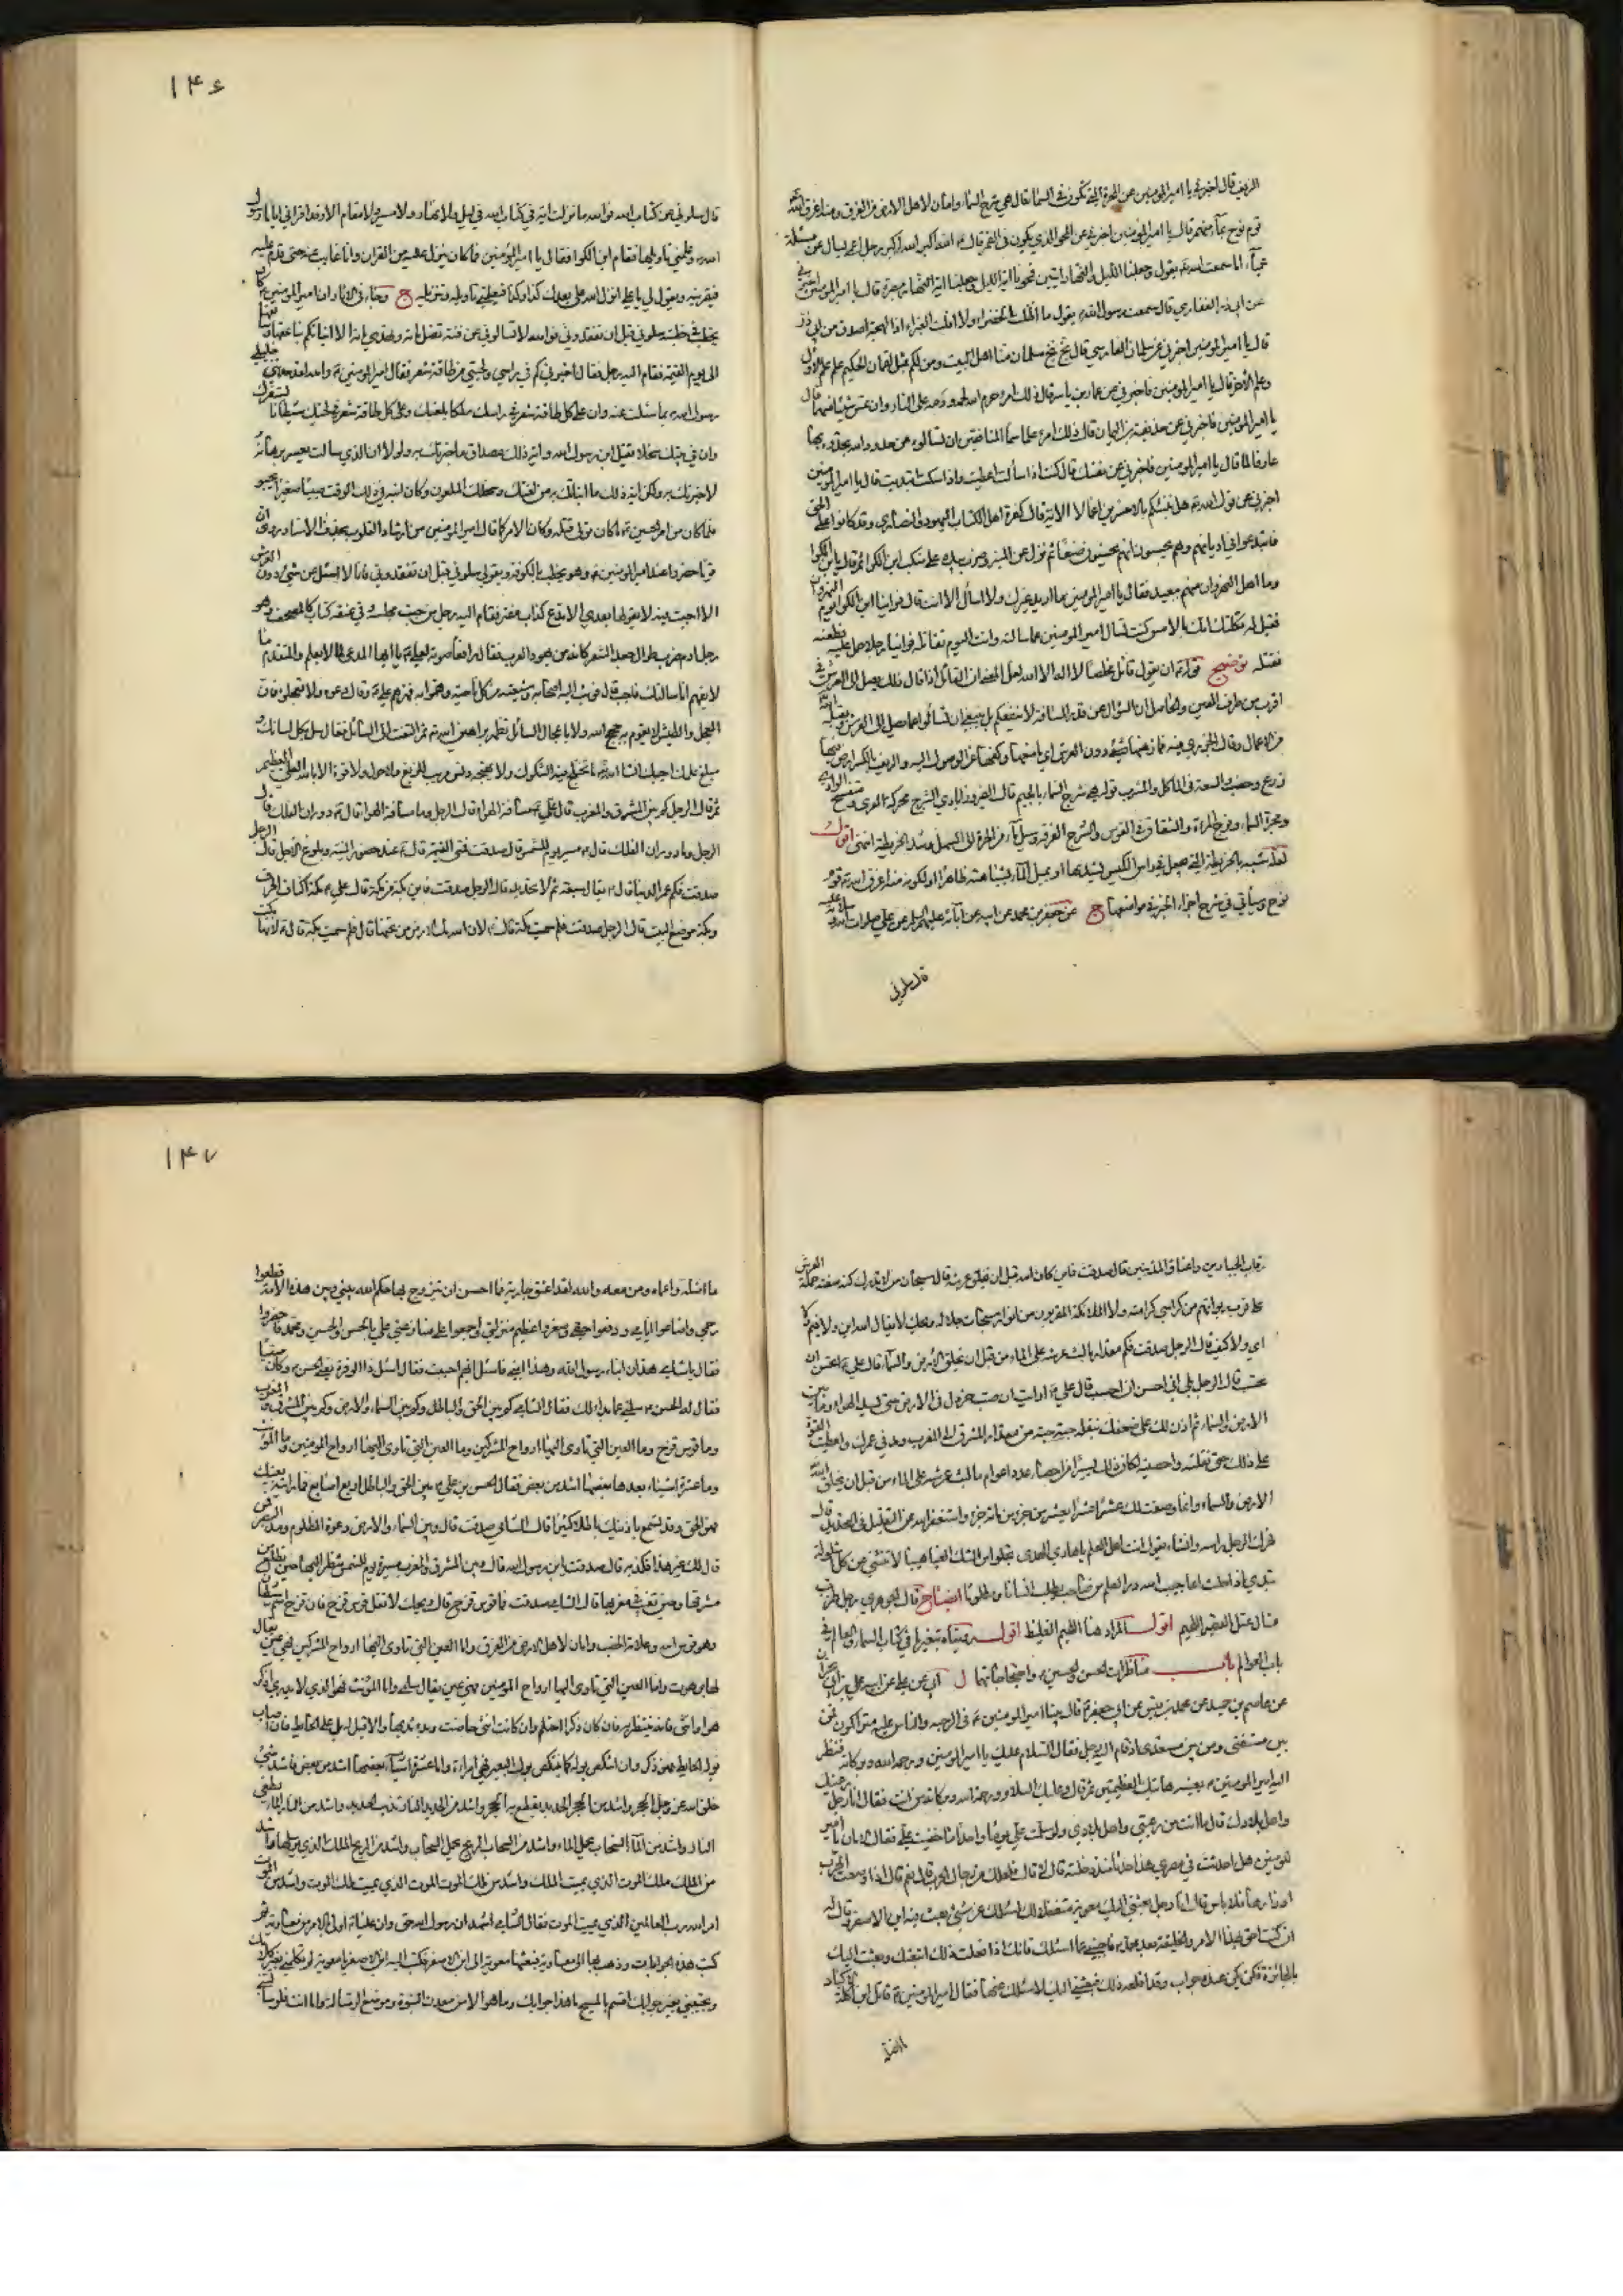 الزيف قال اخبرني يا امير المؤمنين عن المجرة التي تكون في السماء قال هي شرج السماء وامان لاهل الارض من الغرق ومنه اغرق الله
قوم نوح بماء منهمر قال يا امير المؤمنين اخبرني عن المحو الذي يكون في القمر قال الله اكبر الله اكبر رجل اعمى يسال عن مسئلة
عمياء اما سمعت الله يقول وجعلنا الليل والنهار ايتين فمحونا اية الليل وجعلنا اية النهار مبصرة قال يا امير المؤمنين اخبرني
عن ابي ذر الغفاري قال سمعت رسول الله يقول ما اظلت الخضراء ولا اقلت الغبراء ذا لهجة اصدق من ابي ذر
قال يا امير المؤمنين اخبرني عن سلمان الفارسي قال بخ بخ سلمان منا اهل البيت ومن لكم بمثل لقمان الحكيم علم علم الاول
وعلم الاخر قال يا امير المؤمنين فاخبرني عن عمار بن ياسر قال ذلك امرء حرم الله لحمه ودمه على النار وان تمس شيئا منهما قال
يا امير المؤمنين فاخبرني عن حذيفة بن اليمان قال ذلك امرء علم اسماء المنافقين ان تسالوه عن حدود الله تجدوه بها
عارفا عالما قال يا امير المؤمنين فاخبرني عن نفسك قال كنت اذا سألت اعطيت واذا سكت ابتديت قال يا امير المؤمنين
اخبرني عن قول الله هل ننبئكم بالاخسرين اعمالا الاية قال كفرة اهل الكتاب اليهود والنصارى وقد كانوا على الحق
فابتدعوا في اديانهم وهم يحسبون انهم يحسنون صنعا ثم نزل عن المنبر وضرب بيده على منكب ابن الكوا ثم قال يا بن الكوا
وما اهل النهروان منهم ببعيد فقال يا امير المؤمنين ما اريد غيرك ولا اسأل الا انت قال فراينا ابن الكوا يوم النهروان
فقيل له ثكلتك امك بالامس كنت تسال امير المؤمنين عما سالته وانت اليوم تقاتله فراينا رجلا حمل عليه فطعنه
فقتله توضيح قوله ان يقول قائل مخلصا لا اله الا الله
اقرب من طرف العين والحاصل ان السؤال عن قدر المسافة لا ينفعكم بل ينبغي ان تسألوا عما يصل الى العرش ويقبله الله
من الاعمال
زرع وخصب والسعة في الماكل والمشرب قوله هي شرج السماء بالجيم قال الفيروزابادي الشرج محركة العرى ومنفسح الوادي
ومجرة السماء وفرج المراة والشقاق في القوس والشرج الفرقة ومسيل الماء من الحرة الى السهل وشد الخريطة انتهى اقول
لعله شبه بالخريطة التي تجعل في راس الكيس يشد بها او بمسيل الماء لشباهته ظاهرا او لكونه منه اغرق الله قوم
نوح وسيأتي في شرح اجزاء الخبر في مواضعها ج عن جعفر بن محمد عن ابيه عن آبائه عليهم السلام عن علي صلوات الله عليه
قال سلوني
١٤٦
قال سلوني عن كتاب الله فوالله ما نزلت اية في كتاب الله في ليل ولا نهار ولا مسير ولا مقام الا وقد اقراني اياها رسول
الله وعلمني تاويلها فقام ابن الكوا فقال يا امير المؤمنين فما كان ينزل عليه من القران وانا غائب عنه حتى قدم عليه
فيقرئنيه ويقول لي يا علي انزل الله علي بعدك كذا وكذا فيعلمني تاويله وتنزيله ج وجاء في الاثار ان امير المؤمنين كان
يخطب في خطبته سلوني قبل ان تفقدوني فوالله لا تسالوني عن فئة تضل ماة وتهدي ماة الا انبأتكم بناعقها وسائقها
الى يوم القيمة فقام اليه رجل فقال اخبرني كم في راسي ولحيتي من طاقة شعر فقال امير المؤمنين والله لقد حدثني خليلي
رسول الله بما سئلت عنه وان على كل طاقة شعر في راسك ملكا يلعنك وعلى كل طاقة شعر في لحيتك شيطانا يستفزك
وان في بيتك سخلا يقتل ابن رسول الله واية ذلك مصداق ما خبرتك به ولولا ان الذي سالت يعسر برهانه
لاخبرتك به ولكن اية ذلك ما انبأتك به من لعنتك وسخلك الملعون وكان ابنه في ذلك الوقت صبيا صغيرا يحبو
فلما كان من امر الحسين ما كان تولى قتله وكان الامر كما قال امير المؤمنين من ارشاد القلوب بحذف الاسناد روي ان
قوما حضروا عند امير المؤمنين وهو يخطب بالكوفة ويقول سلوني قبل ان تفقدوني فانا لا اسئل عن شيء دون العرش
الا اجبت فيه لا يقولها بعدي الا مدع كذاب مفتر فقام اليه رجل من جنب مجلسه وفي عنقه كتاب كالمصحف وهو
رجل ادم ضرب طوال جعد الشعر كانه من يهود العرب فقال رافعا صوته لعلي يا ايها المدعي لما لا يعلم والمتقدم لما
لا يفهم انا سائلك فاجب قال فوثب اليه اصحابه وشيعته من كل ناحية وهموا به فنهرهم علي وقال دعوه ولا تعجلوه فان
العجل والطيش لا يقوم به حجج الله ولا باعجال السائل تظهر براهين الله ثم التفت الى السائل فقال سل بكل لسانك و
مبلغ علمك اجبك انشا الله بعلم لا تختلج فيه الشكوك ولا يهيجه دنس ريب الزيغ ولا حول ولا قوة الا بالله العلي العظيم
ثم قال الرجل كم بين المشرق والمغرب قال علي مسافة الهواء قال الرجل وما مسافة الهواء قال دوران الفلك قال
الرجل وما دوران الفلك قال مسير يوم للشمس قال صدقت فمتى القيمة قال عند حضور المنية وبلوغ الاجل قال الرجل
صدقت فكم عمر الدنيا قال يقال سبعة ثم لا تحديد قال الرجل صدقت فاين بكة من مكة قال علي مكة اكناف الحرم
وبكة موضع البيت قال الرجل صدقت فلم سميت مكة قال لان الله مك الارض من تحتها قال فلم سميت بكة قال لانها بكت
رقاب الجبارين واعناق المذنبين قال صدقت فاين كان الله قبل ان يخلق عرشه قال سبحان من لا تدرك كنه صفته حملة العرش
على قرب ربواتهم من كراسي كرامته ولا الملائكة المقربون من انوار سبحات جلاله ويحك لا يقال الله اين ولا فيم ولا
اي ولا كيف قال الرجل صدقت فكم مقدار ما لبث عرشه على الماء من قبل ان يخلق الارض والسماء قال علي اتحسن ان
تحسب قال الرجل بلى اني احسن ان احسب قال علي ارايت ان صب خردل في الارض حتى يسد الهواء وما بين
الارض والسماء ثم اذن لك على ضعفك تنقله حبة حبة من مقدار المشرق الى المغرب ومد في عمرك واعطيت القوة
على ذلك حتى نقلته واحصيته لكان ذلك ايسر من احصاء عدد اعوام ما لبث عرشه على الماء من قبل ان يخلق الله
الارض والسماء وانما وصفت لك عشر عشر العشير من جزء من ماة جزء واستغفر الله عن التقليل في التحديد قال
فحرك الرجل راسه وانشاء يقول انت اهل العلم يا هادي الهدى تجلو من الشك الغياهيبا لا تنثني عن كل اشكولة
تبدي اذا حلت اعاجيبا لله در العلم من صاحب يطلب انسانا ومطلوبا ايضاح قال الجوهري رجل ضرب
اقول المراد هنا اقول
باب العوالم باب مناظرات الحسن والحسين واحتجاجاتهما ل
عن عاصم بن حميد عن محمد بن قيس عن ابي جعفر قال بينا امير المؤمنين في الرحبة والناس عليه متراكمون فمن
بين مستفتي ومن بين مستعدي اذ قام اليه رجل فقال السلام عليك يا امير المؤمنين ورحمة الله وبركاته فنظر
اليه امير المؤمنين بعينيه هاتيك العظيمتين ثم قال وعليك السلام ورحمة الله وبركاته من انت فقال انا رجل من رعيتك
واهل بلادك قال ما انت من رعيتي واهل بلادي ولو سلمت علي يوما واحدا ما خفيت علي فقال الامان يا امير
المؤمنين هل احدثت في مصري هذا حدثا منذ دخلته قال لا قال فلعلك من رجال الحرب قال نعم قال اذا وضعت الحرب
اوزارها فلا باس قال انا رجل بعثني اليك معوية متغفلا لك اسئلك عن شيء بعث فيه ابن الاصفر وقال له
ان كنت احق بهذا الامر والخليفة بعد محمد فاجبني عما اسئلك فانك اذا فعلت ذلك اتبعتك وبعثت اليك
بالجائزة فلم يكن عنده جواب وقد اقلقه ذلك فبعثني اليك لاسئلك عنها فقال امير المؤمنين قاتل الله ابن اكلة الاكباد
ما اضله
١٤٧
ما اضله واعماه ومن معه والله لقد اعتق جارية فما احسن ان يتزوج بها حكم الله بيني وبين هذه الامة قطعوا
رحمي واضاعوا ايامي ودفعوا حقي وصغروا عظيم منزلتي واجمعوا على منازعتي علي بالحسن والحسين ومحمد فاحضروا
فقال يا شامي هذان ابناء رسول الله وهذا ابني فاسئل ايهم احببت فقال اسئل ذا الوفرة يعني الحسن وكان صبيا
فقال له الحسن سلني عما بدا لك فقال الشامي كم بين الحق والباطل وكم بين السماء والارض وكم بين المشرق والمغرب
وما قوس قزح وما العين التي تاوى اليها ارواح المشركين وما العين التي تاوى اليها ارواح المؤمنين وما المؤنث
وما عشرة اشياء بعضها اشد من بعض فقال الحسن بن علي بين الحق والباطل اربع اصابع فما رايته بعينك
فهو الحق وقد تسمع باذنيك باطلا كثيرا قال الشامي صدقت قال وبين السماء والارض دعوة المظلوم ومد البصر فمن
قال لك غير هذا فكذبه قال صدقت يا بن رسول الله قال وبين المشرق والمغرب مسيرة يوم للشمس تنظر اليها حين تطلع من
مشرقها وحين تغيب في مغربها قال الشامي صدقت فما قوس قزح قال ويحك لا تقل قوس قزح فان قزح اسم شيطان
وهو قوس الله وعلامة الخصب وامان لاهل الارض من الغرق واما العين التي تاوى اليها ارواح المشركين فهي عين يقال
لها برهوت واما العين التي تاوى اليها ارواح المؤمنين فهي عين يقال لها سلمى واما المؤنث فهو الذي لا يدرى اذكر
هو ام انثى فانه ينتظر به فان كان ذكرا احتلم وان كانت انثى حاضت وبدا ثديها والا قيل له بل على الحايط فان اصاب
بوله الحايط فهو ذكر وان انتكص بوله كما ينتكص بول البعير فهي امراة واما عشرة اشياء بعضها اشد من بعض فاشد شيء
خلق الله عز وجل الحجر واشد من الحجر الحديد يقطع به الحجر واشد من الحديد النار تذيب الحديد واشد من النار الماء يطفي
النار واشد من الماء السحاب يحمل الماء واشد من السحاب الريح تحمل السحاب واشد من الريح الملك الذي يرسلها واشد
من الملك ملك الموت الذي يميت الملك واشد من ملك الموت الموت الذي يميت ملك الموت واشد من الموت
امر الله رب العالمين الذي يميت الموت فقال الشامي اشهد ان رسول الله حقا وان عليا اولى بالامر من معاوية ثم
كتب هذه الجوابات وذهب بها الى معاوية فبعثها معوية الى ابن الاصفر فكتب اليه ابن الاصفر يا معوية لم تكلمني بغير كلامك
وتجيبني بغير جوابك اقسم بالمسيح ما هذا جوابك وما هو الا من معدن النبوة وموضع الرسالة واما انت فلو سالتني